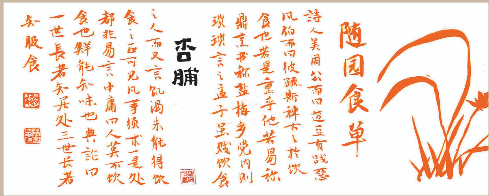 随园食单
詩人美周公而曰籩豆有践惡
凡伯而曰彼疏斯稗古之於饮
食也若是重乎他若易称
鼎烹书称盐梅乡党内则
琐琐言之孟子虽贱饮食
杏脯
之人而又言饥渴未能得饮
食之正可见凡事须求一是处
都非易言中庸曰人莫不饮
食也鲜能知味也典论曰
一世长者知居处三世长者
知服食